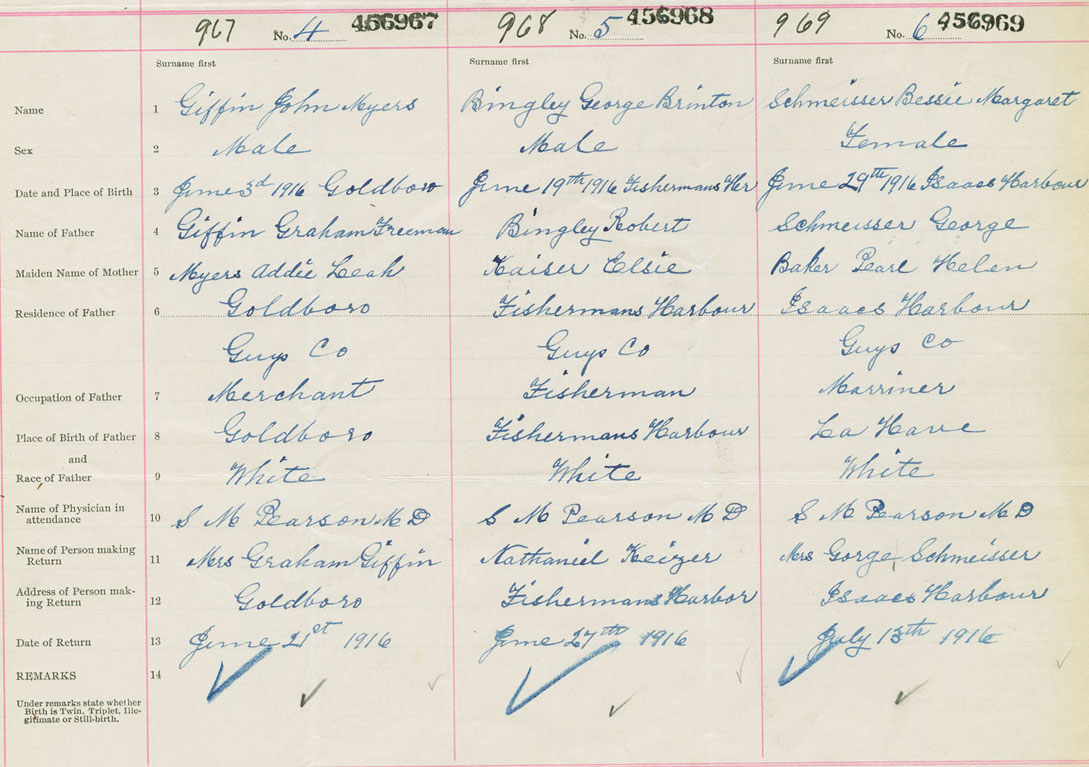 967 No. 4 456967 968 No. 5 456968 969 No. 6 456969
Surname first Surname first Surname first
Name 1 Giffin John Myers Bingley George Brinton Schmeisser Bessie Margaret
Sex 2 Male Male Female
Date and Place of Birth 3 June 3d 1916 Goldboro June 19th 1916 Fishermans Har June 29th 1916 Isaacs Harbour
Name of Father 4 Giffin Graham Freeman Bingley Robert Schmeisser George
Maiden Name of Mother 5 Myers Addie Leah Kaiser Elsie Baker Pearl Helen
Residence of Father 6 Goldboro Fishermans Harbour Isaacs Harbour
Guys Co Guys Co Guys Co
Occupation of Father 7 Merchant Fisherman Marriner
Place of Birth of Father 8 Goldboro Fishermans Harbour La Have
and
Race of Father 9 White White White
Name of Physician in
attendance 10 S M Pearson M D S M Pearson M D S M Pearson M D
Name of Person making
Return 11 Mrs Graham Giffin Nathaniel Keizer Mrs Gorge Schmeisser
Address of Person mak-
ing Return 12 Goldboro Fishermans Harbor Isaacs Harbour
Date of Return 13 June 21st 1916 June 27th 1916 July 13th 1916
REMARKS 14
Under remarks state whether
Birth is Twin, Triplet, Ille-
gitimate or Still-birth.